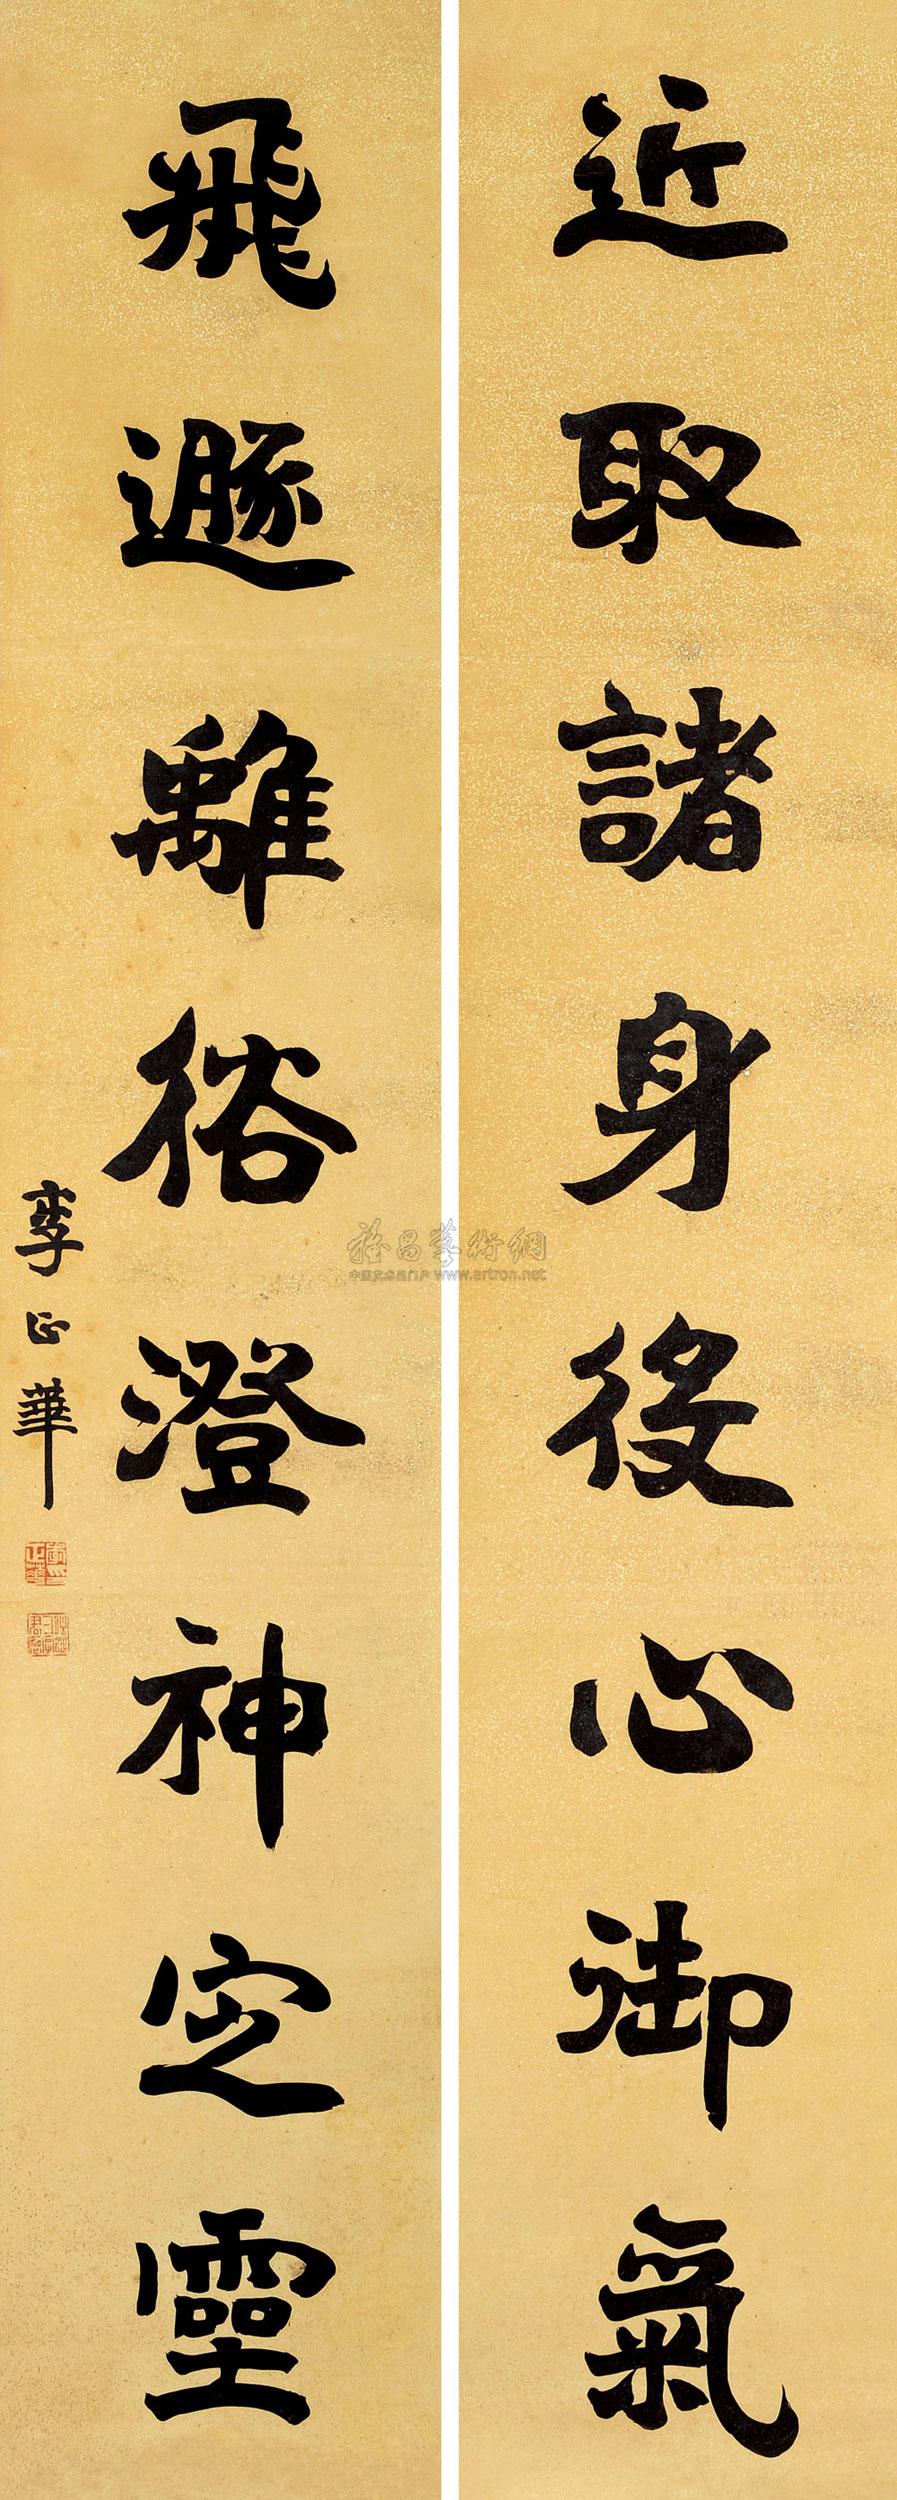 近取諸身役心御氣
飛遯離俗澄神定靈
李正華
雅昌藝術網
中国艺术品门户 www.artron.net